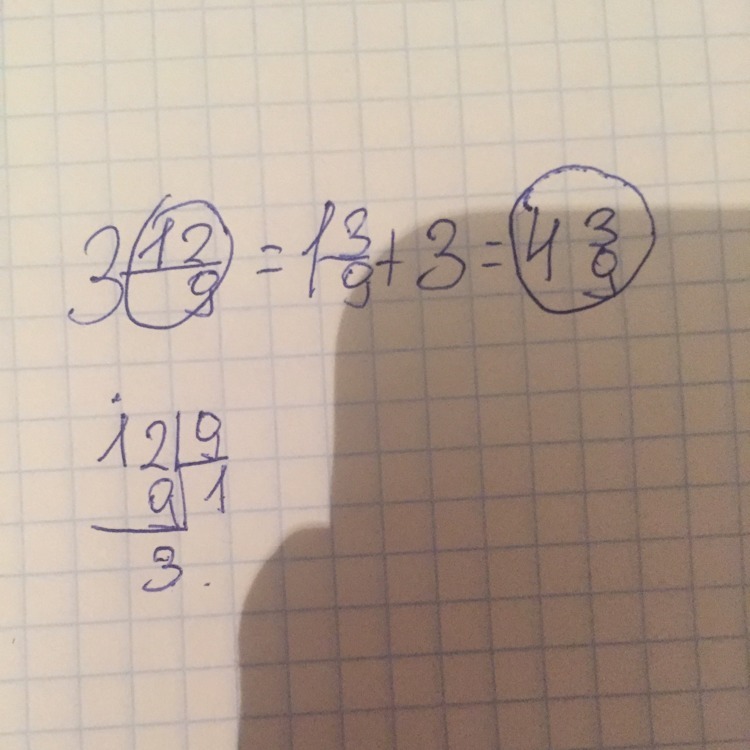 3 12/9 = 1 3/9 + 3 = 4 3/9
12 | 9
9 | 1
3